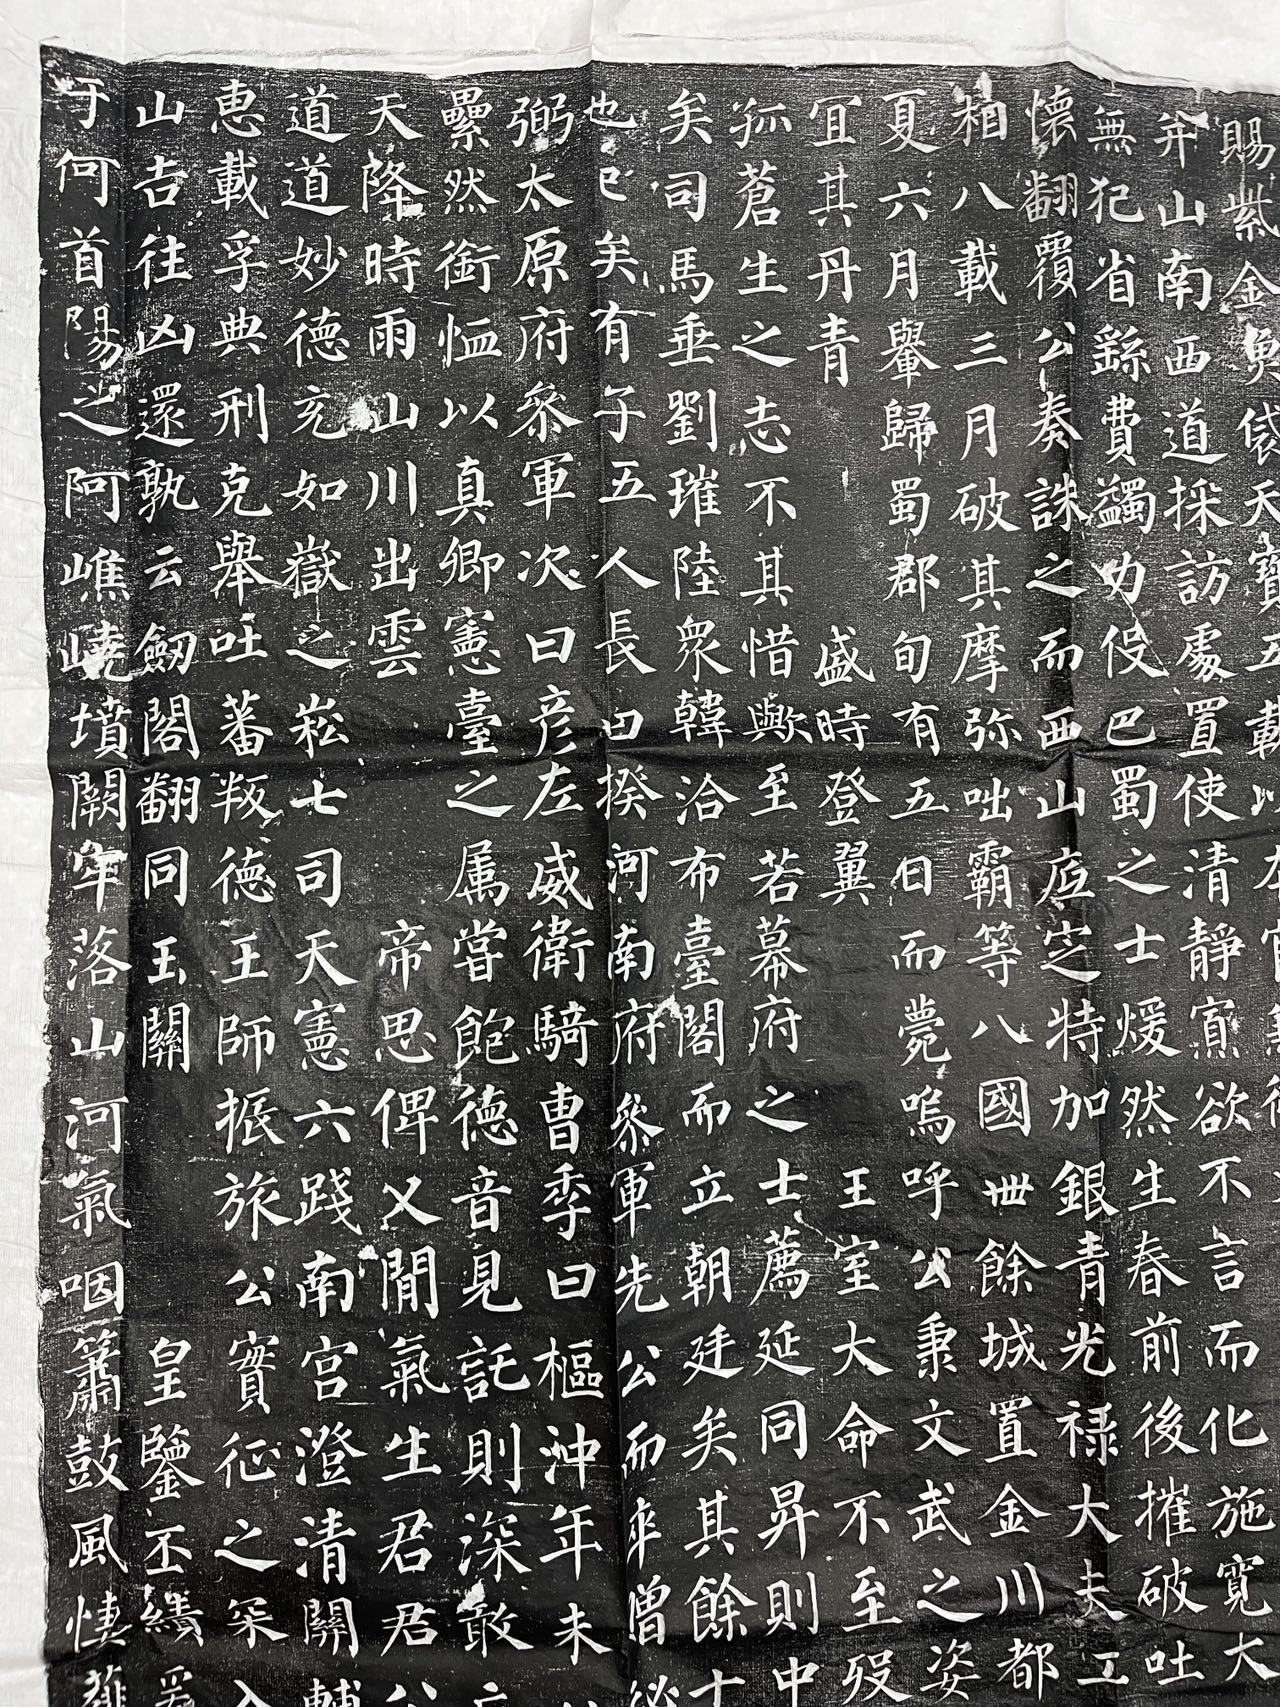 賜紫金魚袋天寶五載以左
弁山南西道採訪處置使清靜寡欲不言而化施寬大
無犯省繇費蠲力役巴蜀之士煖然生春前後摧破吐
懷翻覆公奏誅之而西山底定特加銀青光禄大夫工
相八載三月破其摩弥咄霸等八國卌餘城置金川都
夏六月轝歸蜀郡旬有五日而薨嗚呼公秉文武之姿
宜其丹青 盛時登翼 王室大命不至歿
孤蒼生之志不其惜歟至若幕府之士薦延同昇則中
矣司馬垂劉璀陸衆韓洽布臺閣而立朝廷矣其餘十
也已矣有子五人長曰揆河南府叅軍先公而卒僧
弼太原府叅軍次曰彦左威衛騎曹季曰樞沖年未
纍然銜恤以真卿憲臺之属嘗飽德音見託則深敢
天降時雨山川出雲 帝思俾乂間氣生君君公
道道妙德充如嶽之崧七司天憲六踐南宫澄清關輔
惠載孚典刑克舉吐蕃叛德王師振旅公實征之罙入
山吉往凶還孰云劒閣翻同玉關 皇鑒丕績
于何首陽之阿嶕嶢墳闕牢落山河氣咽簫鼓風悽薤